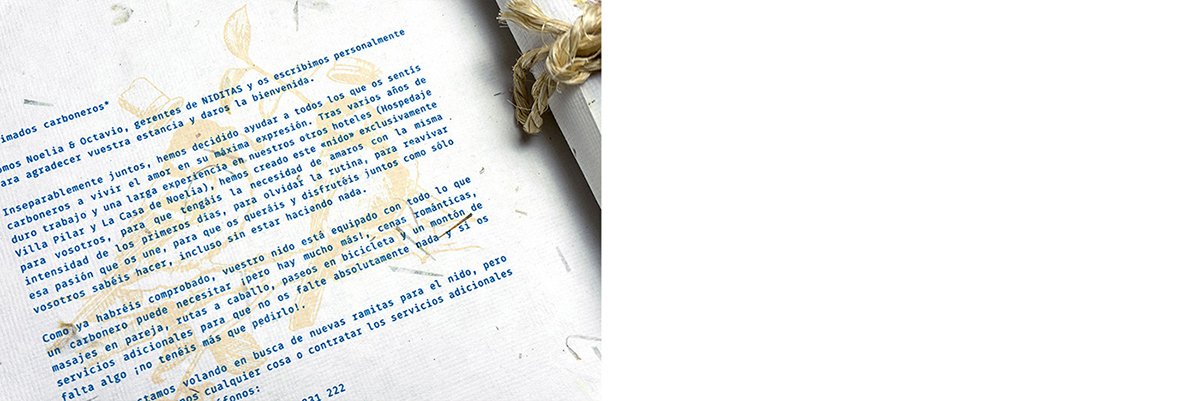 imados carboneros*
omos Noelia & Octavio, gerentes de NIDITAS y os escribimos personalmente
ara agradecer vuestra estancia y daros la bienvenida.
Inseparablemente juntos, hemos decidido ayudar a todos los que os sentís
carboneros a vivir el amor en su máxima expresión. Tras varios años de
duro trabajo y una larga experiencia en nuestros otros hoteles (Hospedaje
Villa Pilar y La Casa de Noelia), hemos creado este «nido» exclusivamente
para vosotros, para que tengáis la necesidad de amaros con la misma
intensidad de los primeros días, para olvidar la rutina, para reavivar
esa pasión que os une, para que os queráis y disfrutéis juntos como sólo
vosotros sabéis hacer, incluso sin estar haciendo nada.
Como ya habréis comprobado, vuestro nido está equipado con todo lo que
un carbonero puede necesitar ¡pero hay mucho más!, cenas románticas,
masajes en pareja, rutas a caballo, paseos en bicicleta y un montón de
servicios adicionales para que no os falte absolutamente nada y si os
falta algo ¡no tenéis más que pedirlo!.
stamos volando en busca de nuevas ramitas para el nido, pero
nos cualquier cosa o contratar los servicios adicionales
fonos:
231 222